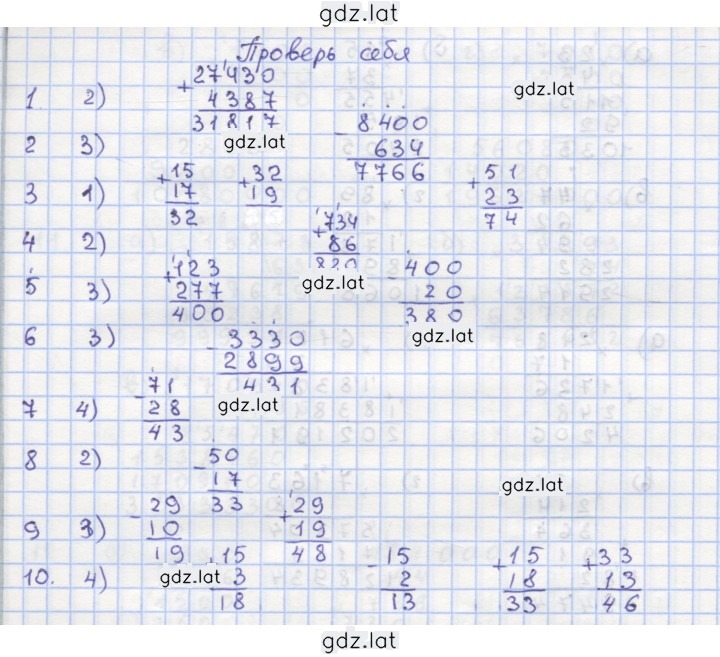 gdz.lat
Проверь себя
1. 2) + 27430
4387
31817
gdz.lat
2 3) - 8400
634
7766
gdz.lat
3 1) + 15
17
32
+ 32
19
+ 51
23
74
4 2) + 734
86
820
gdz.lat
5 3) + 123
277
400
- 400
20
380
gdz.lat
6 3) - 3330
2899
431
gdz.lat
7 4) - 71
28
43
8 2) - 50
17
33
gdz.lat
9 3) - 29
10
19
+ 29
19
48
10. 4) gdz.lat
15
3
18
- 15
2
13
+ 15
18
33
+ 33
13
46
gdz.lat